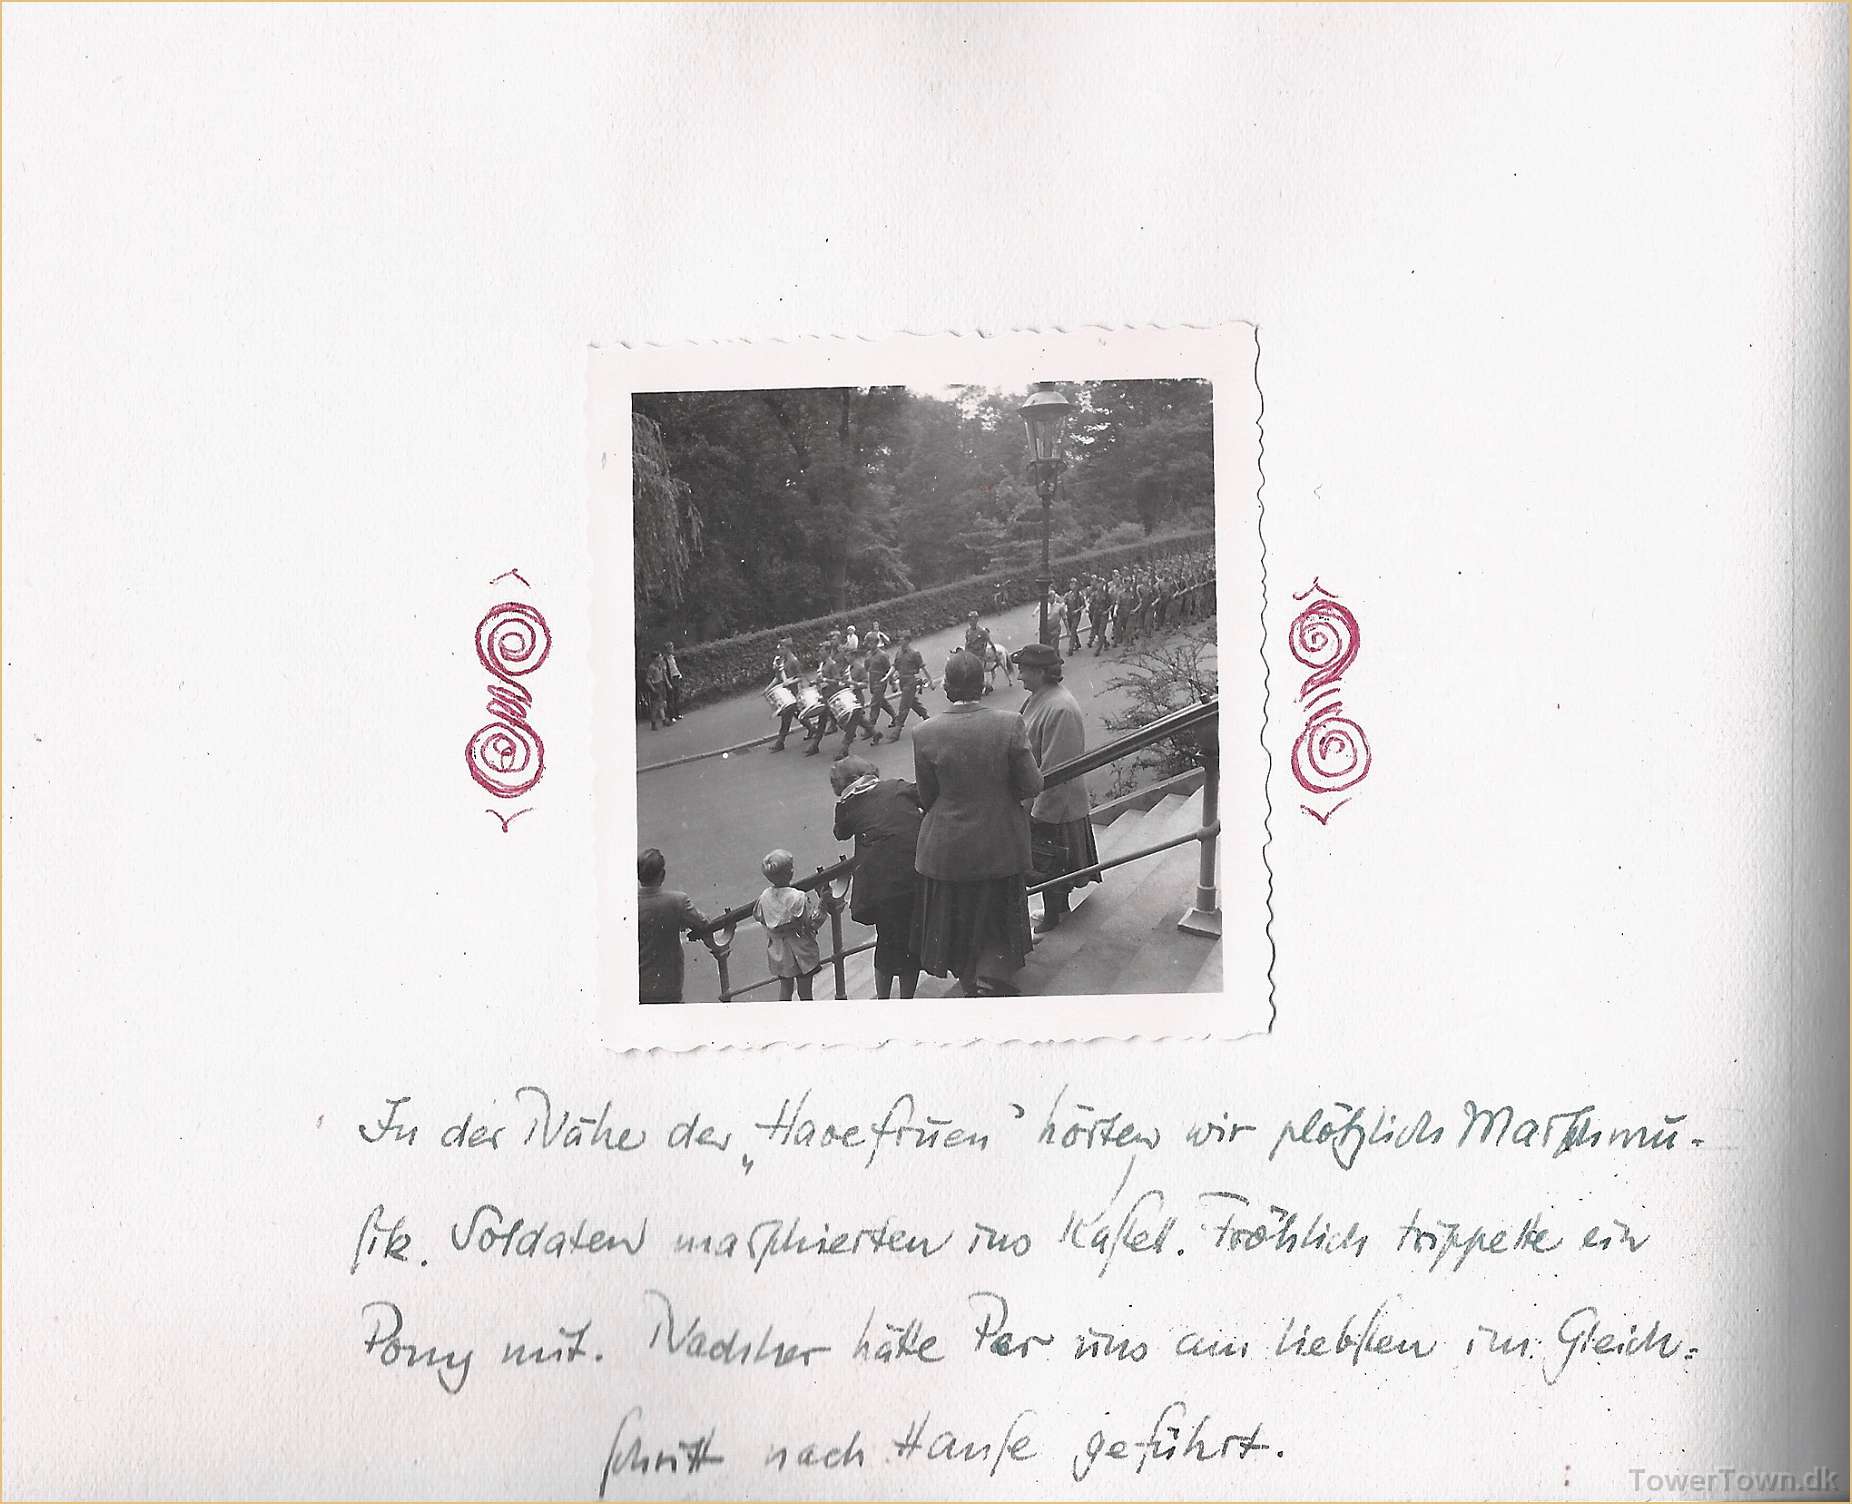 In der Nähe der „Havefruen" hörten wir plötzlich Marschmu-
sik. Soldaten marschierten ins Kastell. Fröhlich trippelte ein
Pony mit. Nachher hätte Per uns am liebsten im Gleich-
schritt nach Hause geführt.
TowerTown.dk